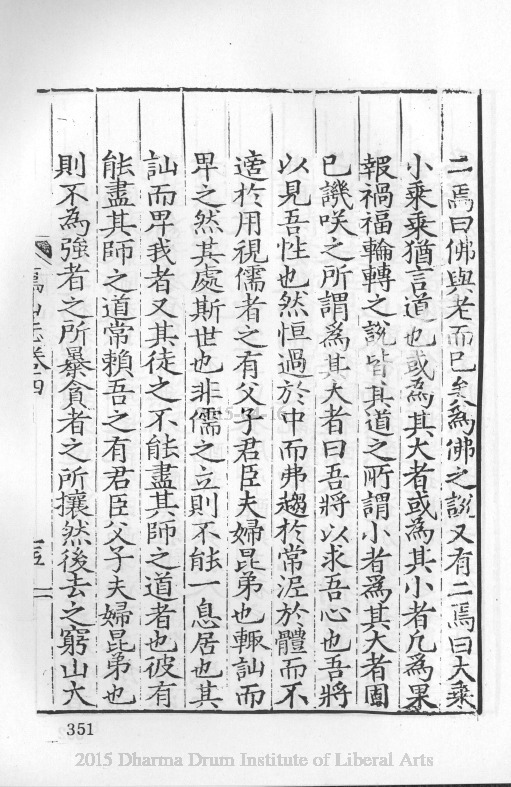 二焉曰佛與老而已矣為佛之說又有二焉曰大乘
小乘乘猶言道也或為其大者或為其小者凡為果
報禍福輪轉之說皆其道之所謂小者為其大者固
已譏咲之所謂為其大者曰吾將以求吾心也吾將
以見吾性也然恒過於中而弗趨於常泥於體而不
適於用視儒者之有父子君臣夫婦昆弟也輒訕而
卑之然其處斯世也非儒之立則不能一息居也其
訕而卑我者又其徒之不能盡其師之道者也彼有
能盡其師之道常賴吾之有君臣父子夫婦昆弟也
則不為強者之所暴貪者之所攘然後去之窮山大
山志卷四
五
351
2015 Dharma Drum Institute of Liberal Arts